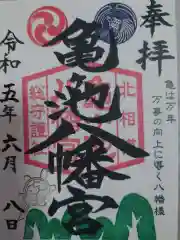 奉拝
亀は万年
万事の向上に導く八幡様
亀ヶ池八幡宮
北相
総守護
令和五年六月八日